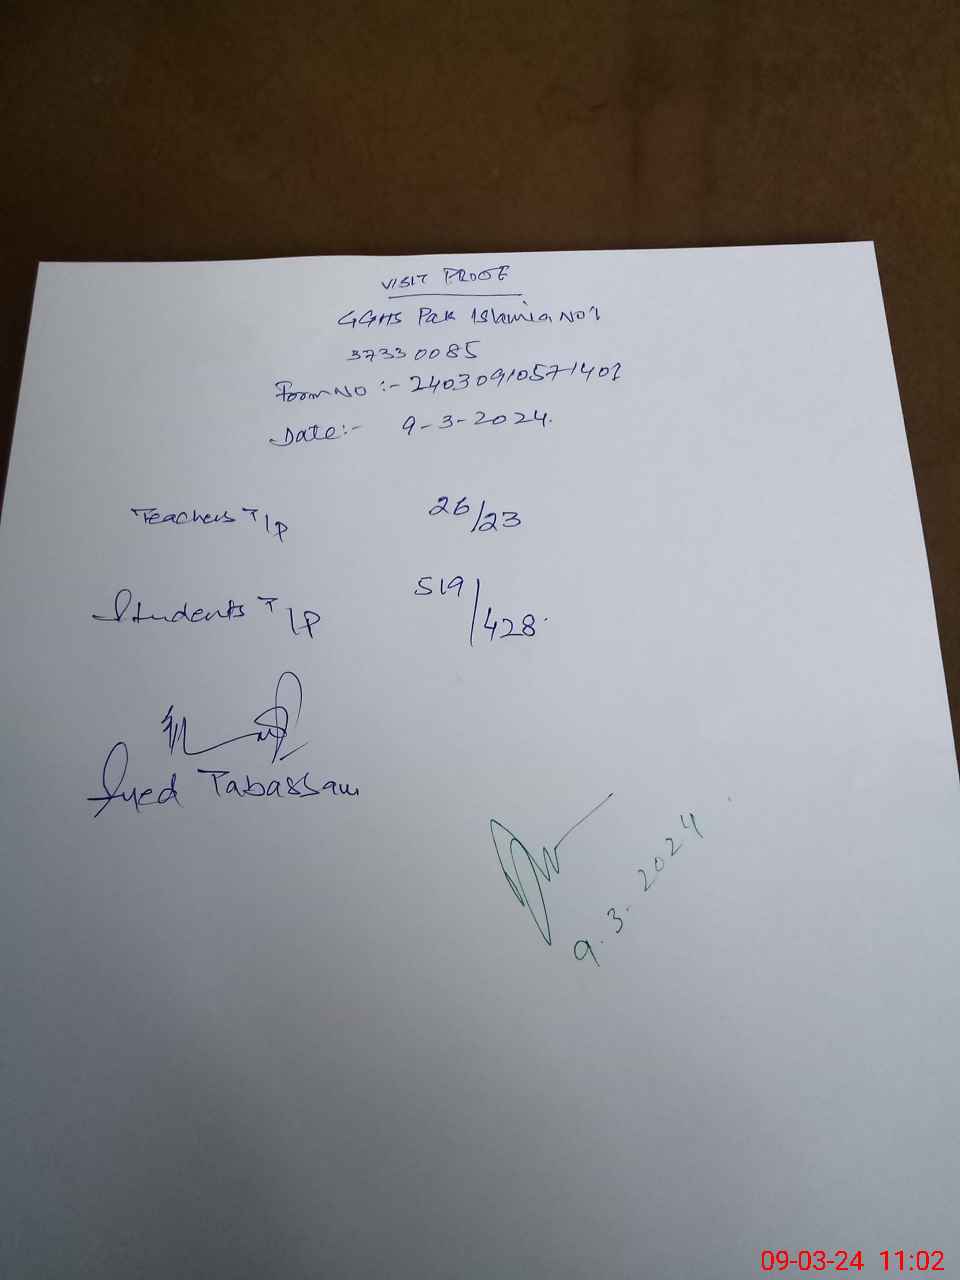 VISIT PROOF
GGHS Pak Islamia No 1
37330085
Form No :- 240309105571401
Date:- 9-3-2024.
Teachers T/P 26/23
Students T/P 519/428.
Syed Tabassam
9.3.2024
09-03-24 11:02